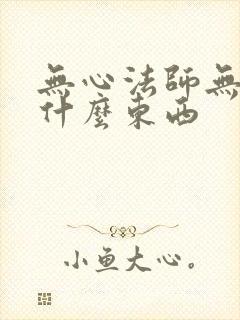 無心法師無
什麼東西
小魚大心。